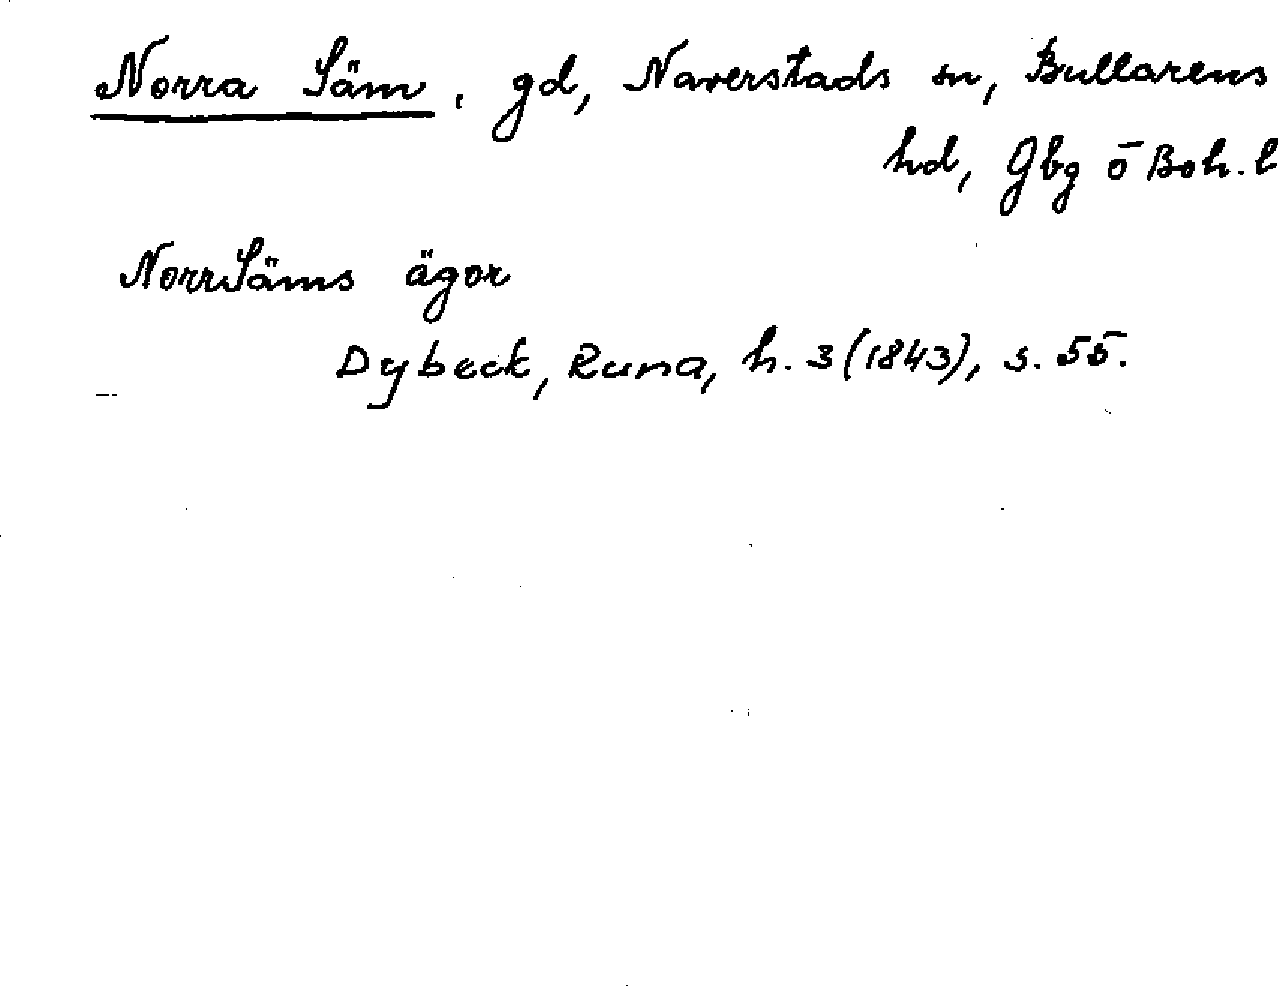 Norra Säm, gd, Naverstads sn, Bullarens
hd, Gbg o Boh. l
NorrSäms ägor
Dybeck, Runa, h. 3 (1843), s. 55.